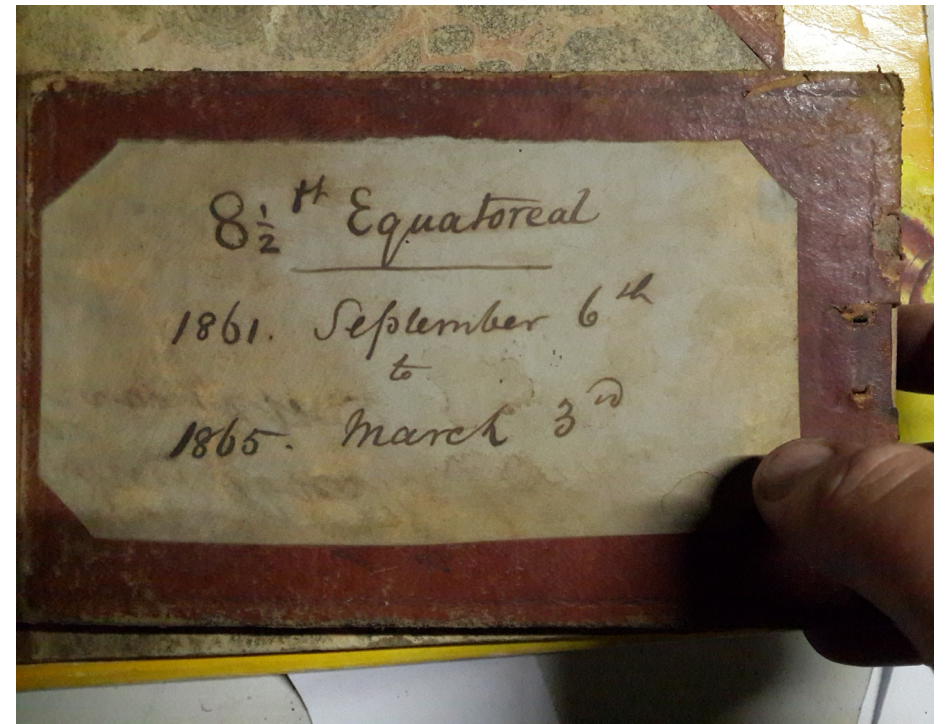 8½ ft Equatoreal
1861. September 6th
to
1865. March 3rd